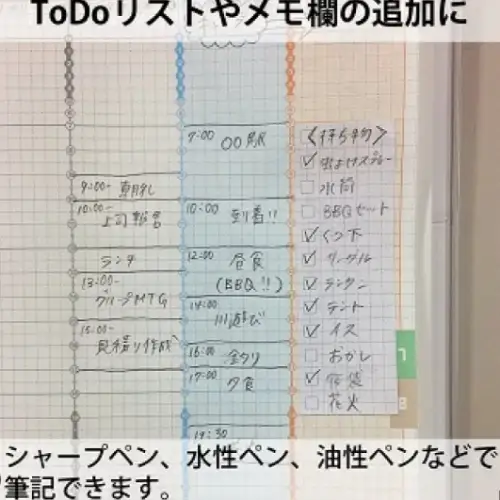 ToDoリストやメモ欄の追加に
9:00- 朝礼
10:00-
上司報告
ランチ
13:00-
グループMTG
15:00-
見積り作成
7:00 〇〇駅
10:00 到着!!
12:00 昼食
(BBQ!!)
14:00
川遊び
16:00 釣り
17:00 夕食
19:30
<持ち物>
虫よけスプレー
水筒
BBQセット
くつ下
ゴーグル
ランタン
テント
イス
おかし
花火
シャープペン、水性ペン、油性ペンなどで
筆記できます。